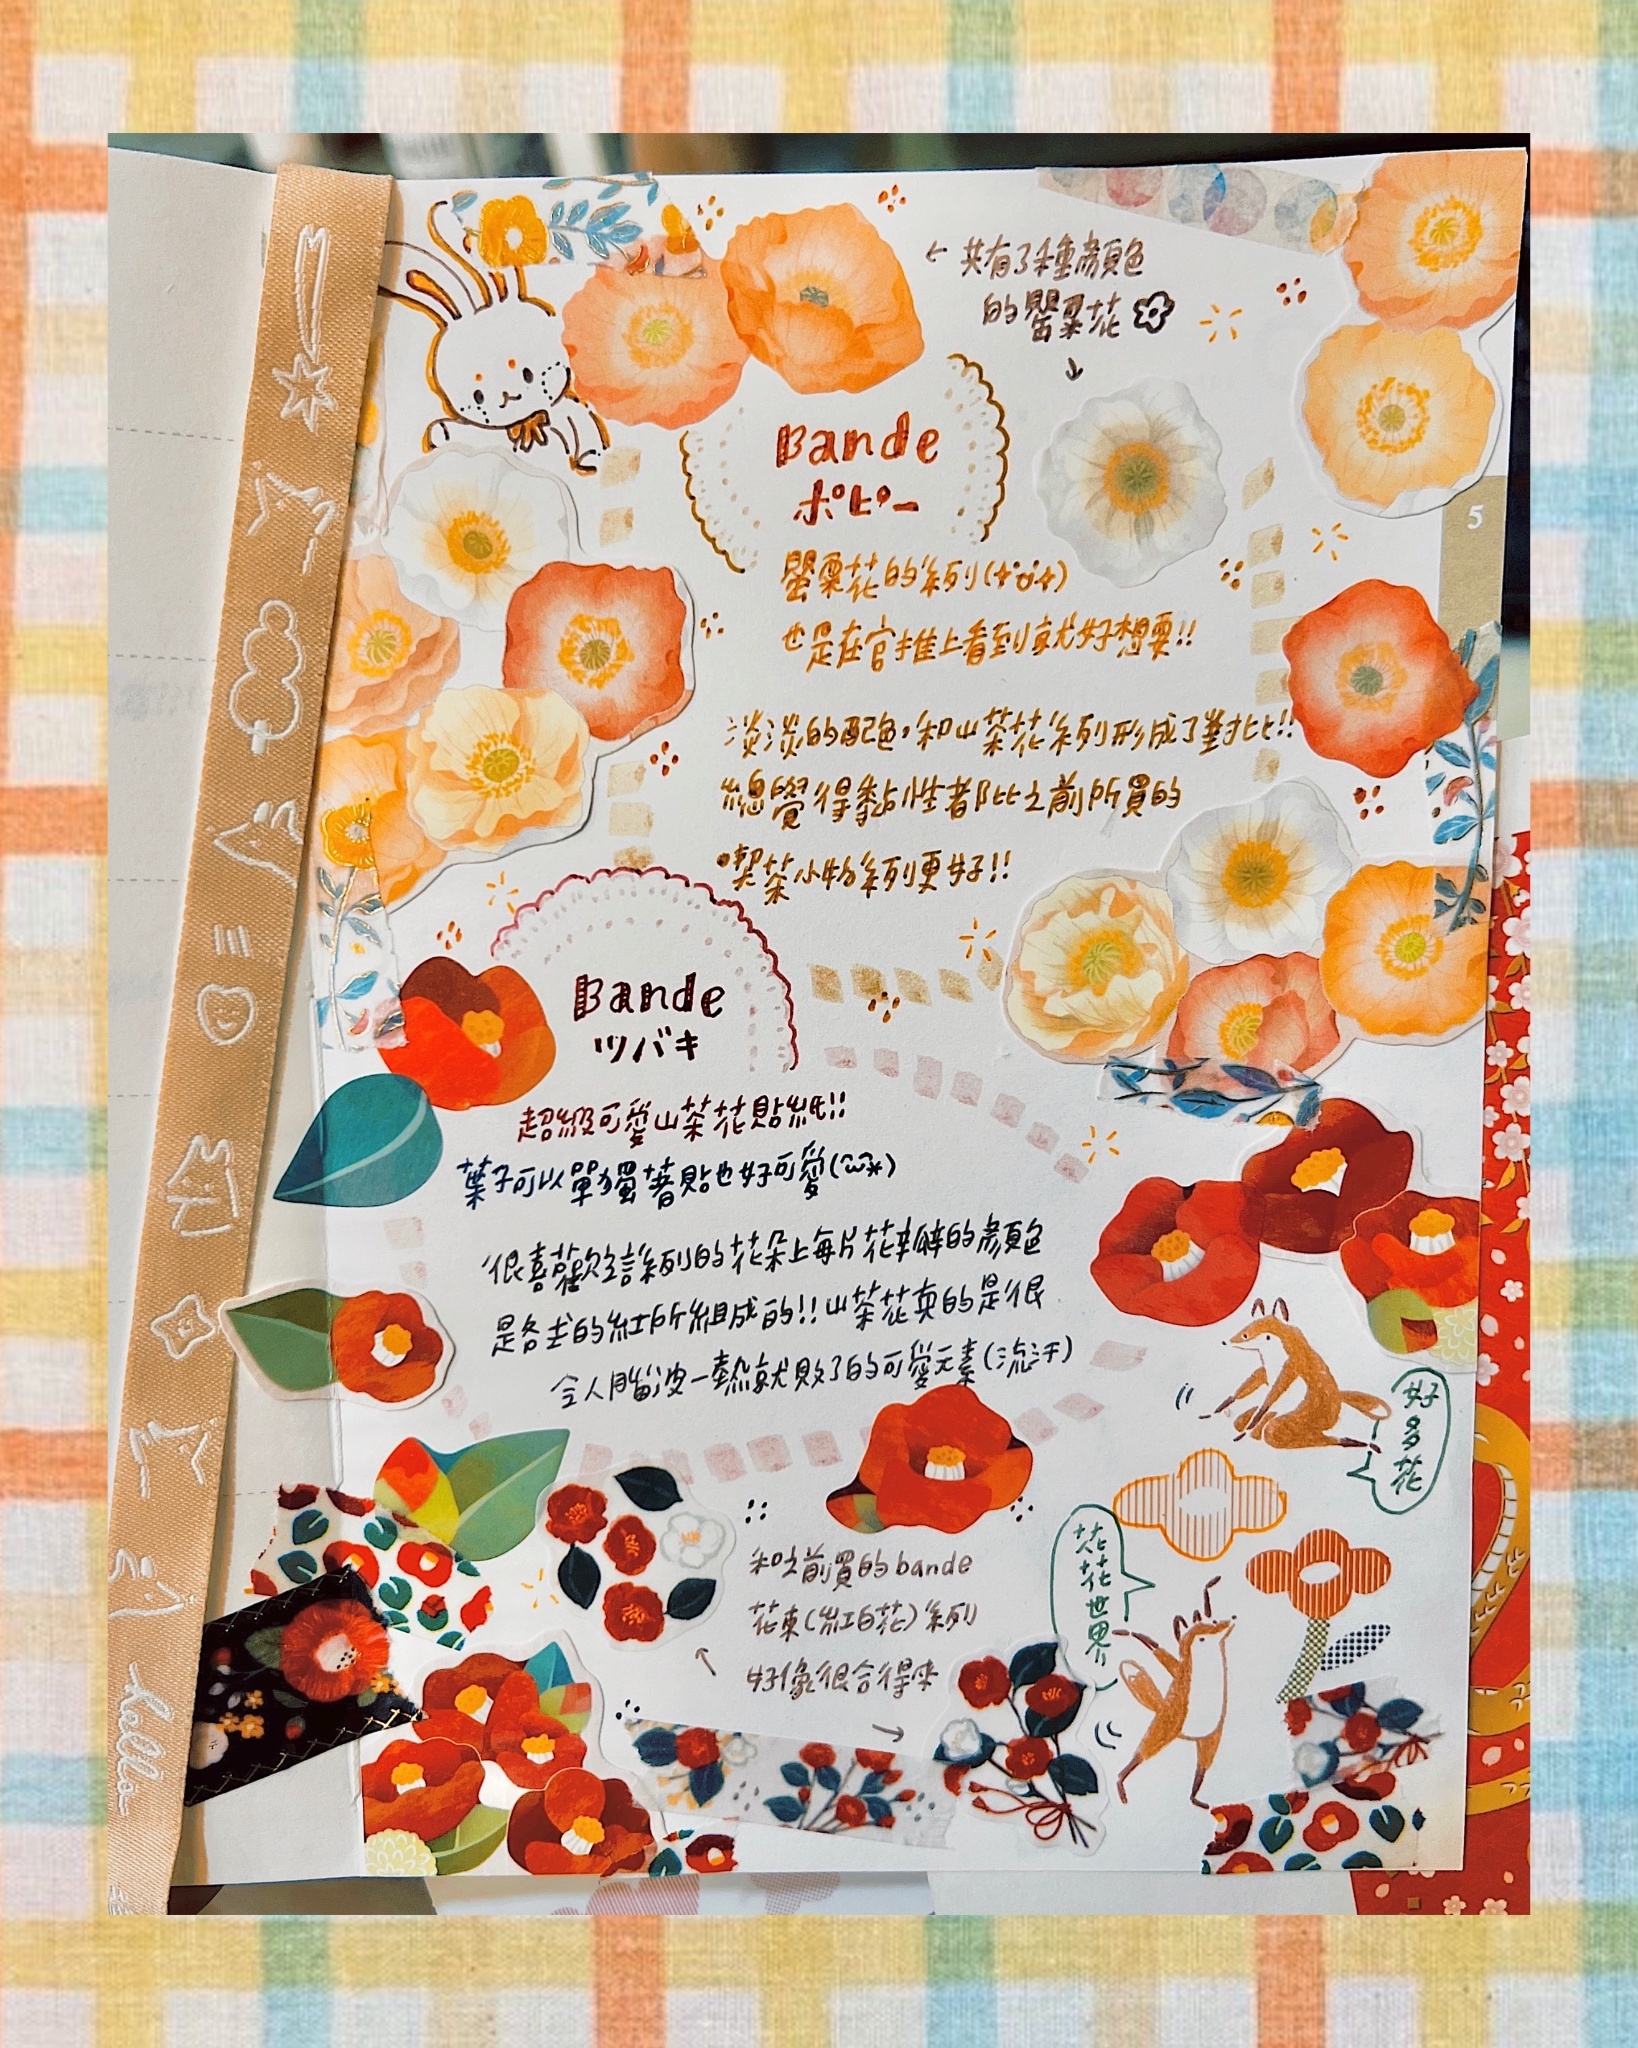 ← 共有了種顏色
的罌粟花
↓
Bande
ポピー
5
罌粟花的系列(✦Ü✦)
也是在官推上看到就好想要!!
淡淡的配色,和山茶花系列形成了對比!!
總覺得黏性都比之前所買的
•喫茶小物系列更好!!
Bande
ツバキ
超級可愛山茶花貼紙!!
葉子可以單獨著貼也好可愛(ᵔᵕᵔ*)
很喜歡這系列的花朵上每片花瓣的顏色
是各式的紅所組成的!!山茶花真的是很
令人腦波一熱就敗了的可愛元素(流汗)
好多花
和之前買的bande
花束(紅白花)系列
好像很合得來
花花世界
hello